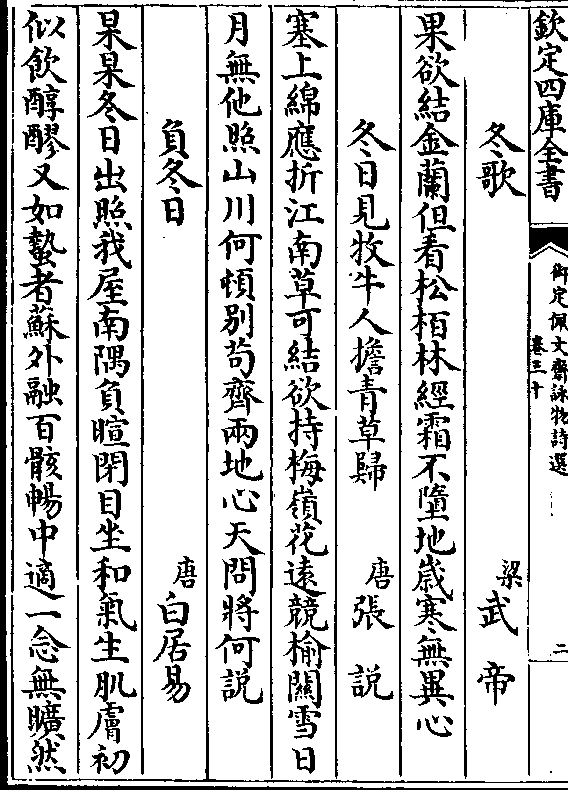 欽定四庫全書
御定佩文齋詠物詩選
卷三十
二
冬歌
梁武帝
果欲結金蘭但看松栢林經霜不墮地歳寒無異心
冬日見牧牛人擔青草歸
唐張説
塞上綿應折江南草可結欲持梅嶺花逺競榆關雪日
月無他照山川何頓别茍齊兩地心天問將何説
負冬日
唐白居易
杲杲冬日出照我屋南隅負暄閉目坐和氣生肌膚初
似飲醇醪又如蟄者蘇外融百骸暢中適一念無曠然